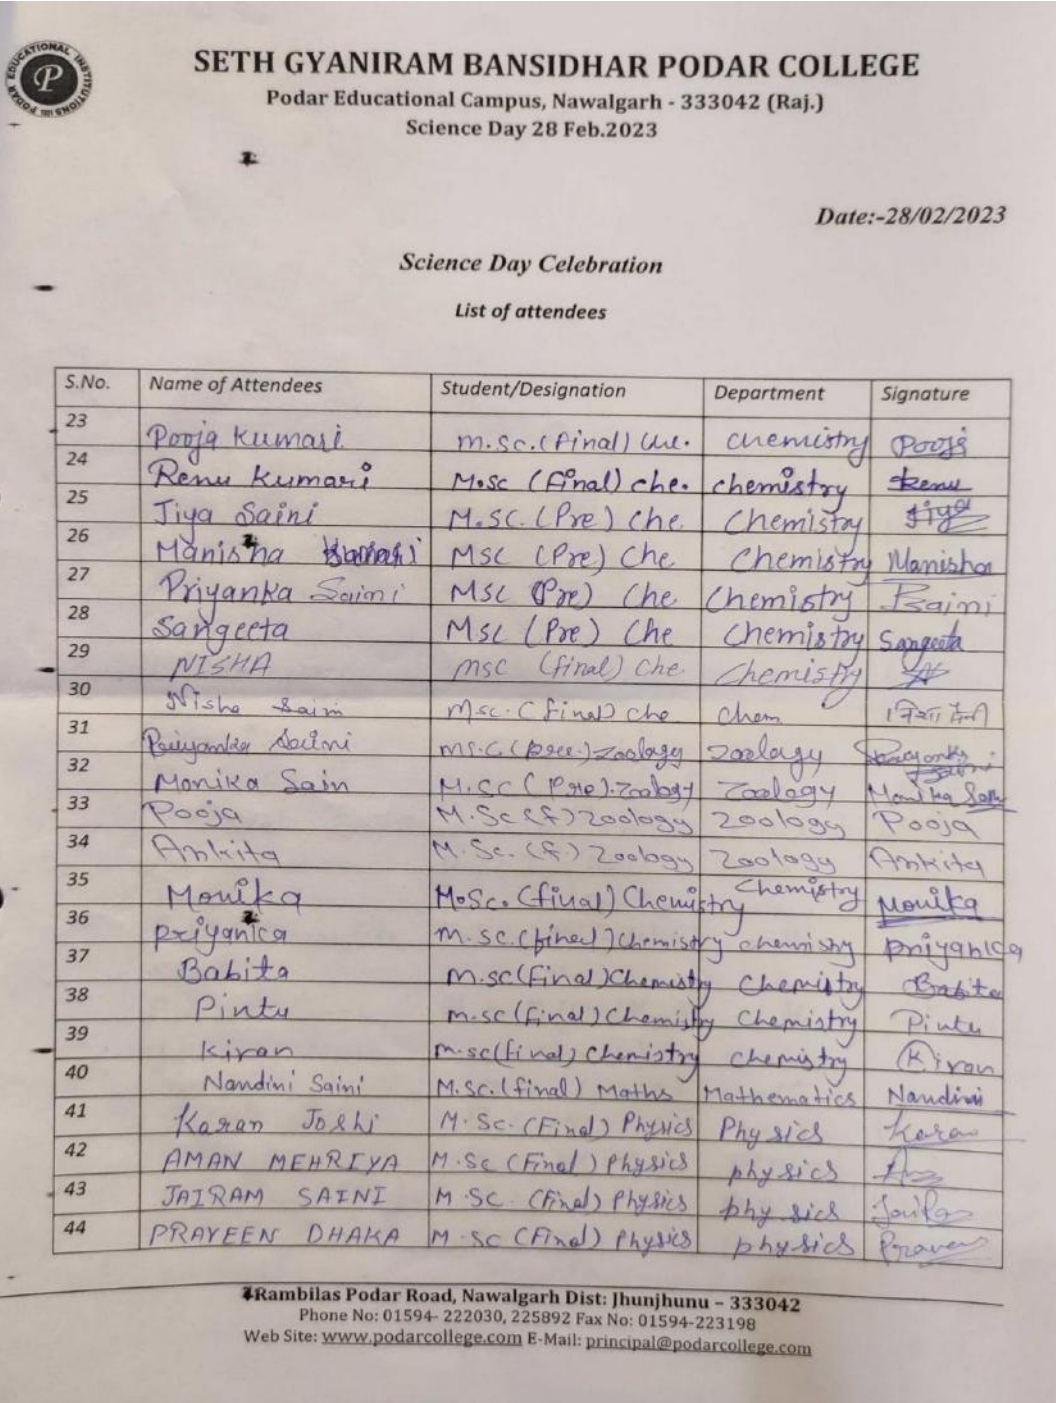 PODAR EDUCATIONAL INSTITUTIONS
P
SETH GYANIRAM BANSIDHAR PODAR COLLEGE
Podar Educational Campus, Nawalgarh - 333042 (Raj.)
Science Day 28 Feb.2023
Date:-28/02/2023
Science Day Celebration
List of attendees
S.No. Name of Attendees Student/Designation Department Signature
23 Pooja Kumari m.sc.(final) che. chemistry Pooja
24 Renu Kumari M.sc (final) che. chemistry Renu
25 Jiya Saini M.SC. (Pre) Che Chemistry Jiya
26 Manisha Kumari MSC (Pre) Che Chemistry Manisha
27 Priyanka Saini MSC (Pre) Che Chemistry PSaini
28 Sangeeta MSC (Pre) Che Chemistry Sangeeta
29 NISHA msc (final) che. Chemistry
30 Nisha Saini Msc. (final) che Chem निशा सैनी
31 Priyanka Saini MS.C. (pre.) zoology zoology Priyanka Saini
32 Monika Sain M.SC (Pre). Zoology Zoology Monika
33 Pooja M.Sc (f) zoology zoology Pooja
34 Ankita M.Sc. (f.) zoology zoology Ankita
35 Monika M.Sc. (final) Chemistry Chemistry Monika
36 priyanka m.sc. (final) Chemistry chemistry priyanka
37 Babita m.sc (final) Chemistry Chemistry Babita
38 Pintu m.sc (final) Chemistry Chemistry Pintu
39 Kiran m.sc (final) Chemistry chemistry Kiran
40 Nandini Saini M.Sc. (final) Maths Mathematics Nandini
41 Karan Joshi M.Sc. (Final) Physics Physics Karan
42 AMAN MEHRIYA M.Sc (Final) Physics physics
43 JAIRAM SAINI M.SC. (Final) Physics physics
44 PRAVEEN DHAKA M.SC (Final) Physics physics Praveen
Rambilas Podar Road, Nawalgarh Dist: Jhunjhunu – 333042
Phone No: 01594- 222030, 225892 Fax No: 01594-223198
Web Site: www.podarcollege.com E-Mail: principal@podarcollege.com